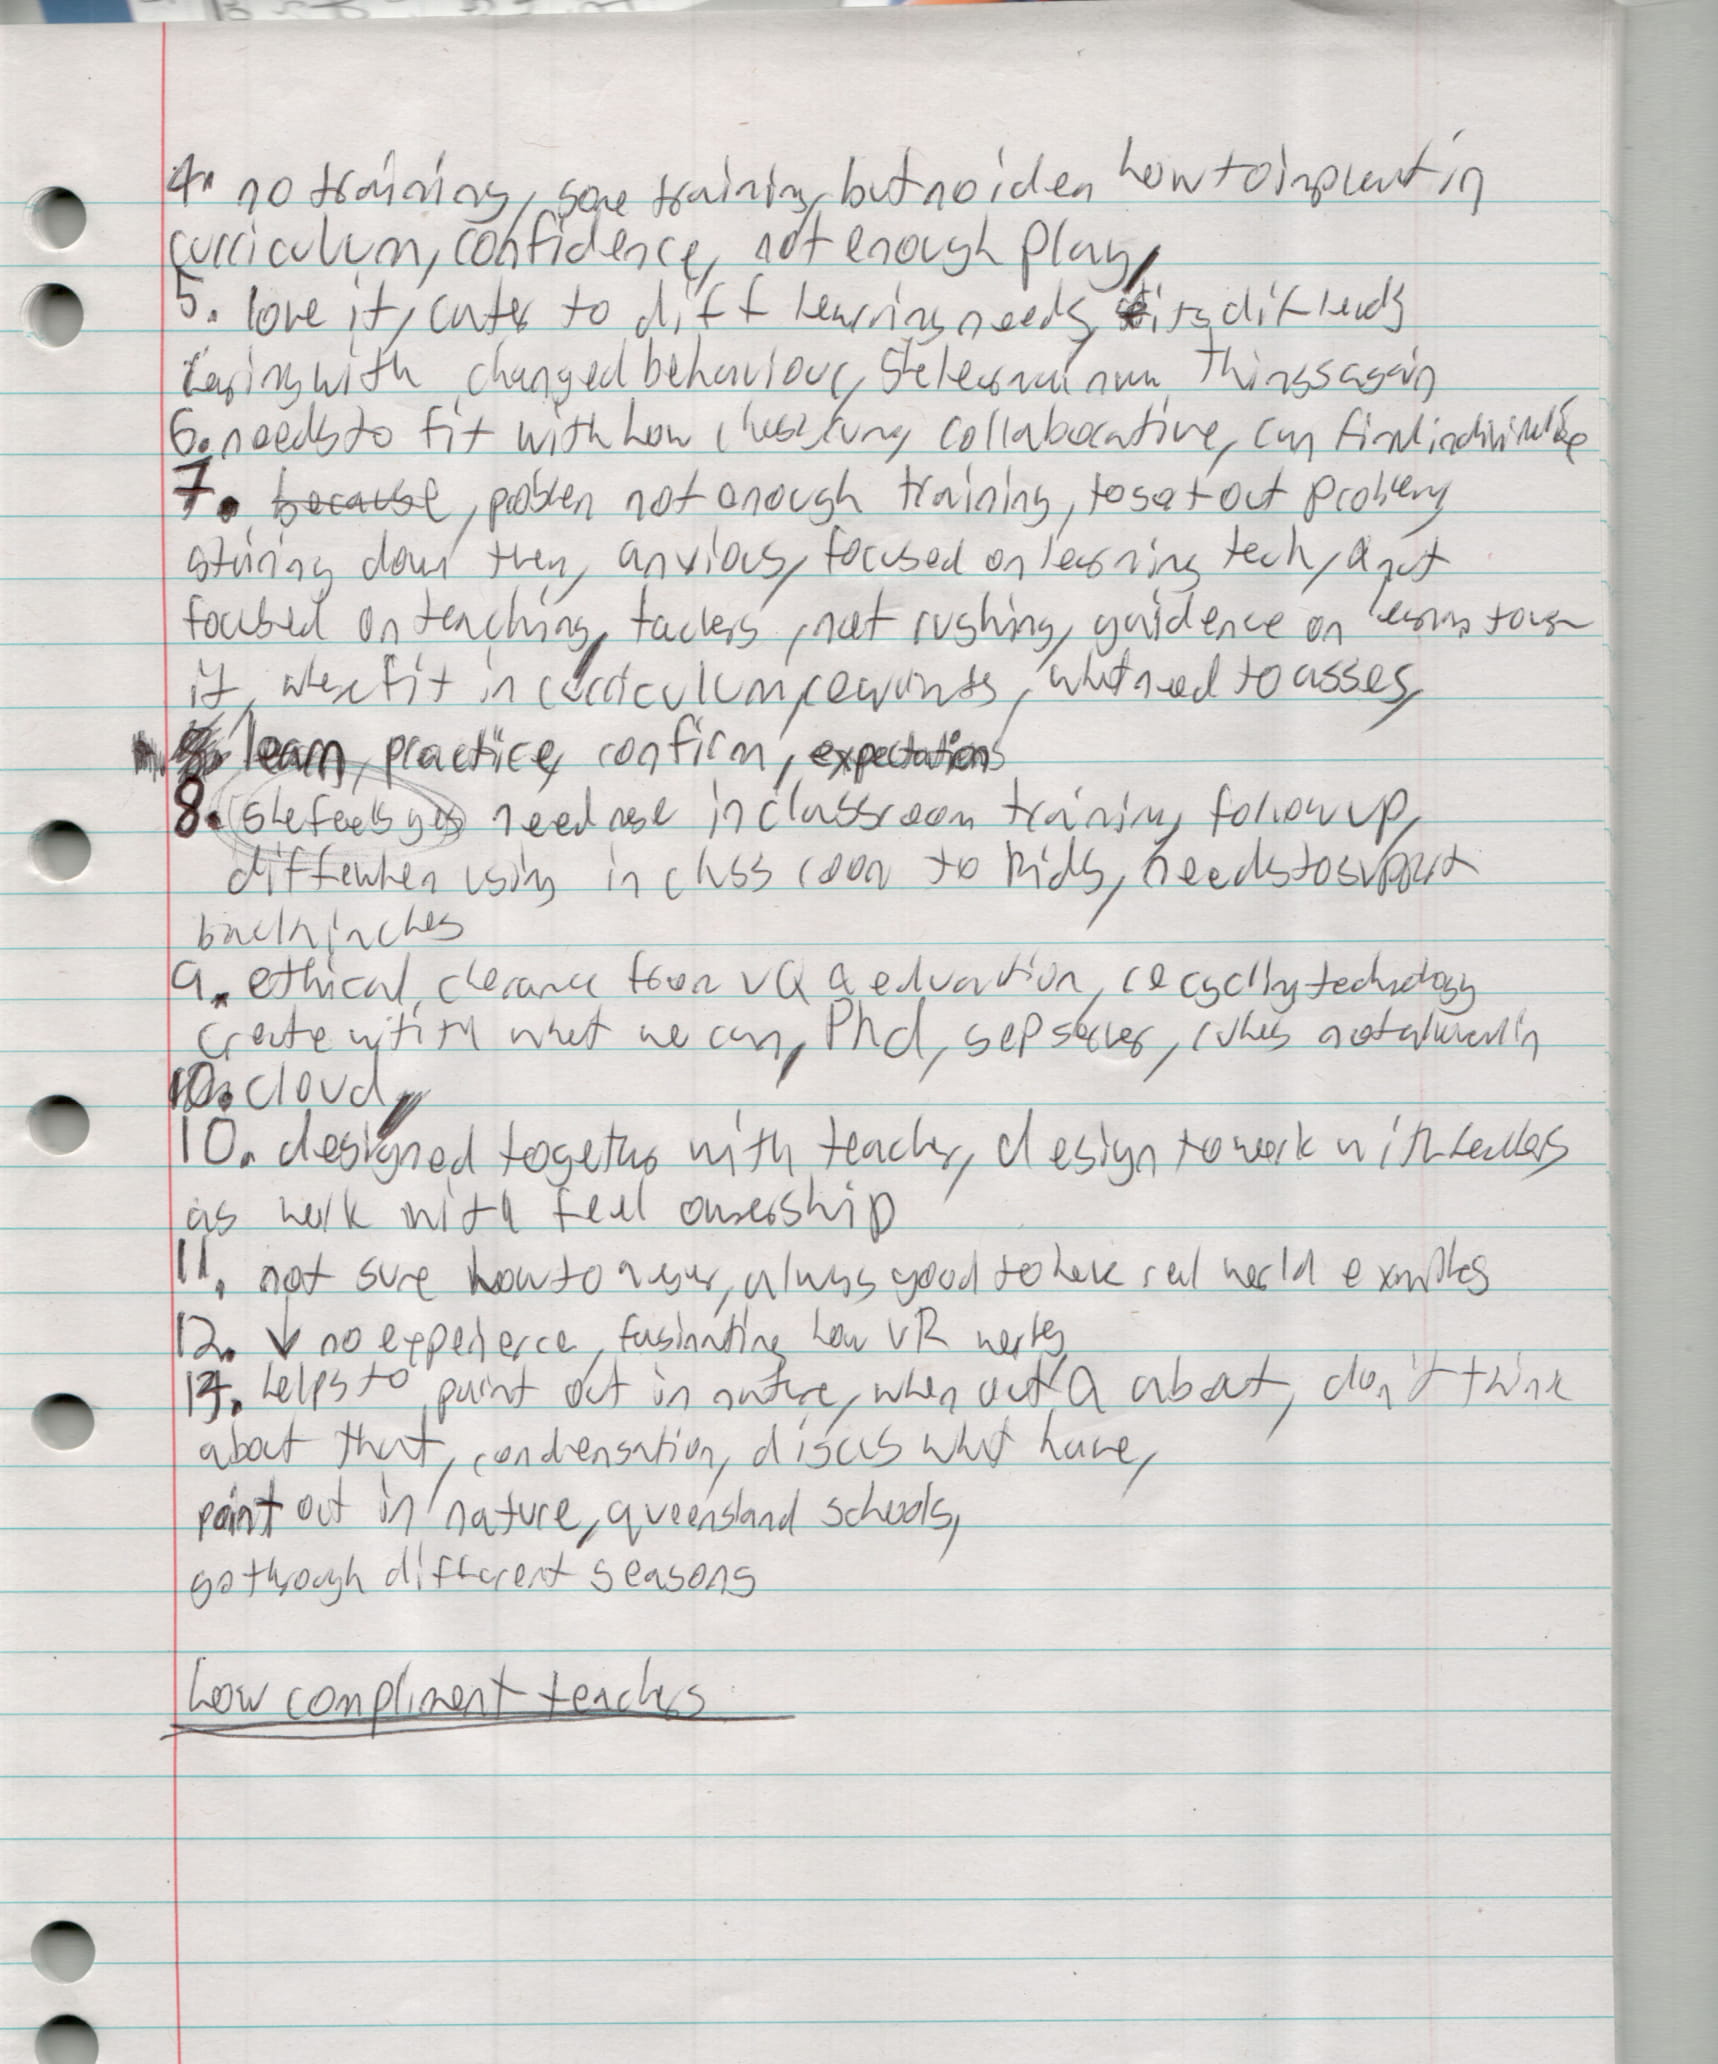 4. no training, some training, but no idea how to implent in
curriculum, confidence, not enough play,
5. love it, cater to diff learning needs, its diff
with changed behaviour, things again
6. needs to fit with how class rung collaborative, can
7. because, problem not enough training, to set out problems
down them, anxious, focused on learning tech, not
focused on teaching, not rushing, guidence on
it, where fit in curriculum, what need to asses,
learn, practice, confirm, expectations
8. she feels yes need more in classroom training, follow up,
diff when using in class room to kids, needs to support
9. ethical clearance from education, recycling technology
create with what we can, Phd, sep server, rules not allowed in
10. cloud,
10. designed together with teacher, design to work with teachers
as work with feel ownership
11. not sure how to answer, always good to have real world examples
12. ↓ no experience, fasinating how VR works
14. helps to point out in nature, when out a about, don't think
about that, condensation, discus what have,
point out in nature, queensland schools,
go through different seasons
how compliment teachers